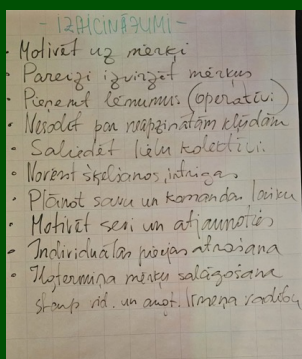 - IZAICINĀJUMI -
• Motivēt uz mērķi
• Pareizi izvirzīt mērķus
• Pieņemt lēmumu. (operatīvi)
• Nesodīt par neapzinātām kļūdām
• Saliedēt lielu kolektīvu.
• Novērst šķelšanos, intrigas
• Plānot savu un komandas laiku
• Motivēt sevi un atjaunoties
• Individuālas pieejas atrašana
• Ilgtermiņa mērķu salāgošana
starp vid. un augst. līmeņa vadību